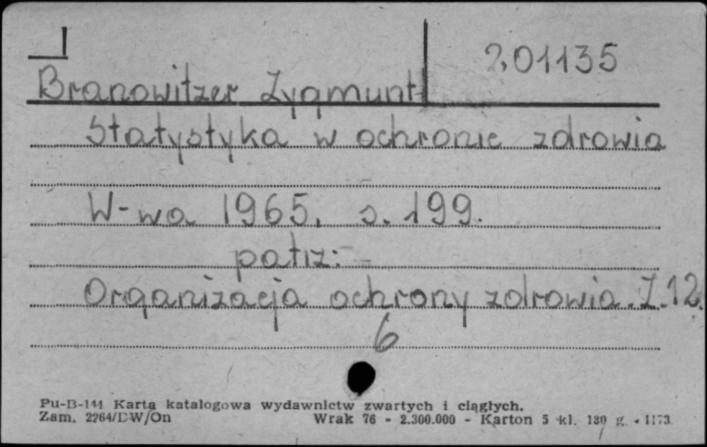 201135
Branowitzer Zygmunt
Statystyka w ochronie zdrowia
W-wa 1965. s. 199.
patrz:
Organizacja ochrony zdrowia. Z. 12.
6
Pu-B-144 Karta katalogowa wydawnictw zwartych i ciągłych.
Zam. 2264/DW/On Wrak 76 - 2.300.000 - Karton 5 kl. 180 g. - 1173